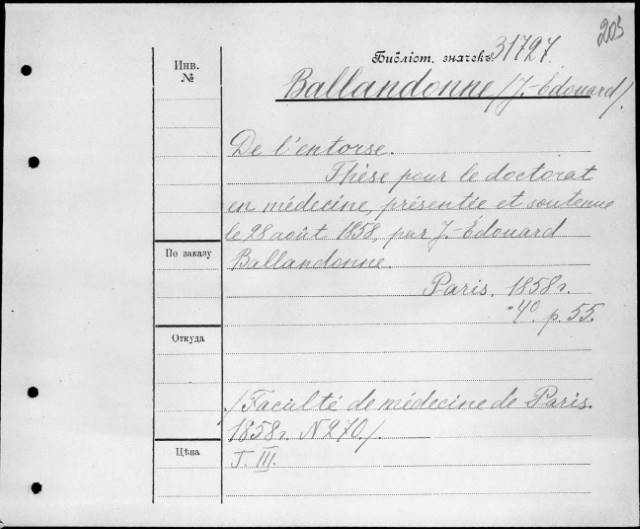 205
Библіот. значекъ 31727.
Инв.
№
Ballandonne /J.-Édouard/.
De l'entorse.
Thèse pour le doctorat
en médecine, présentée et soutenue
le 28 août 1858, par J.-Édouard
По заказу
Ballandonne.
Paris. 1858г.
-4° p. 55.
Откуда
/Faculté de médecine de Paris.
1858г. N270/.
Цѣна
T. III.